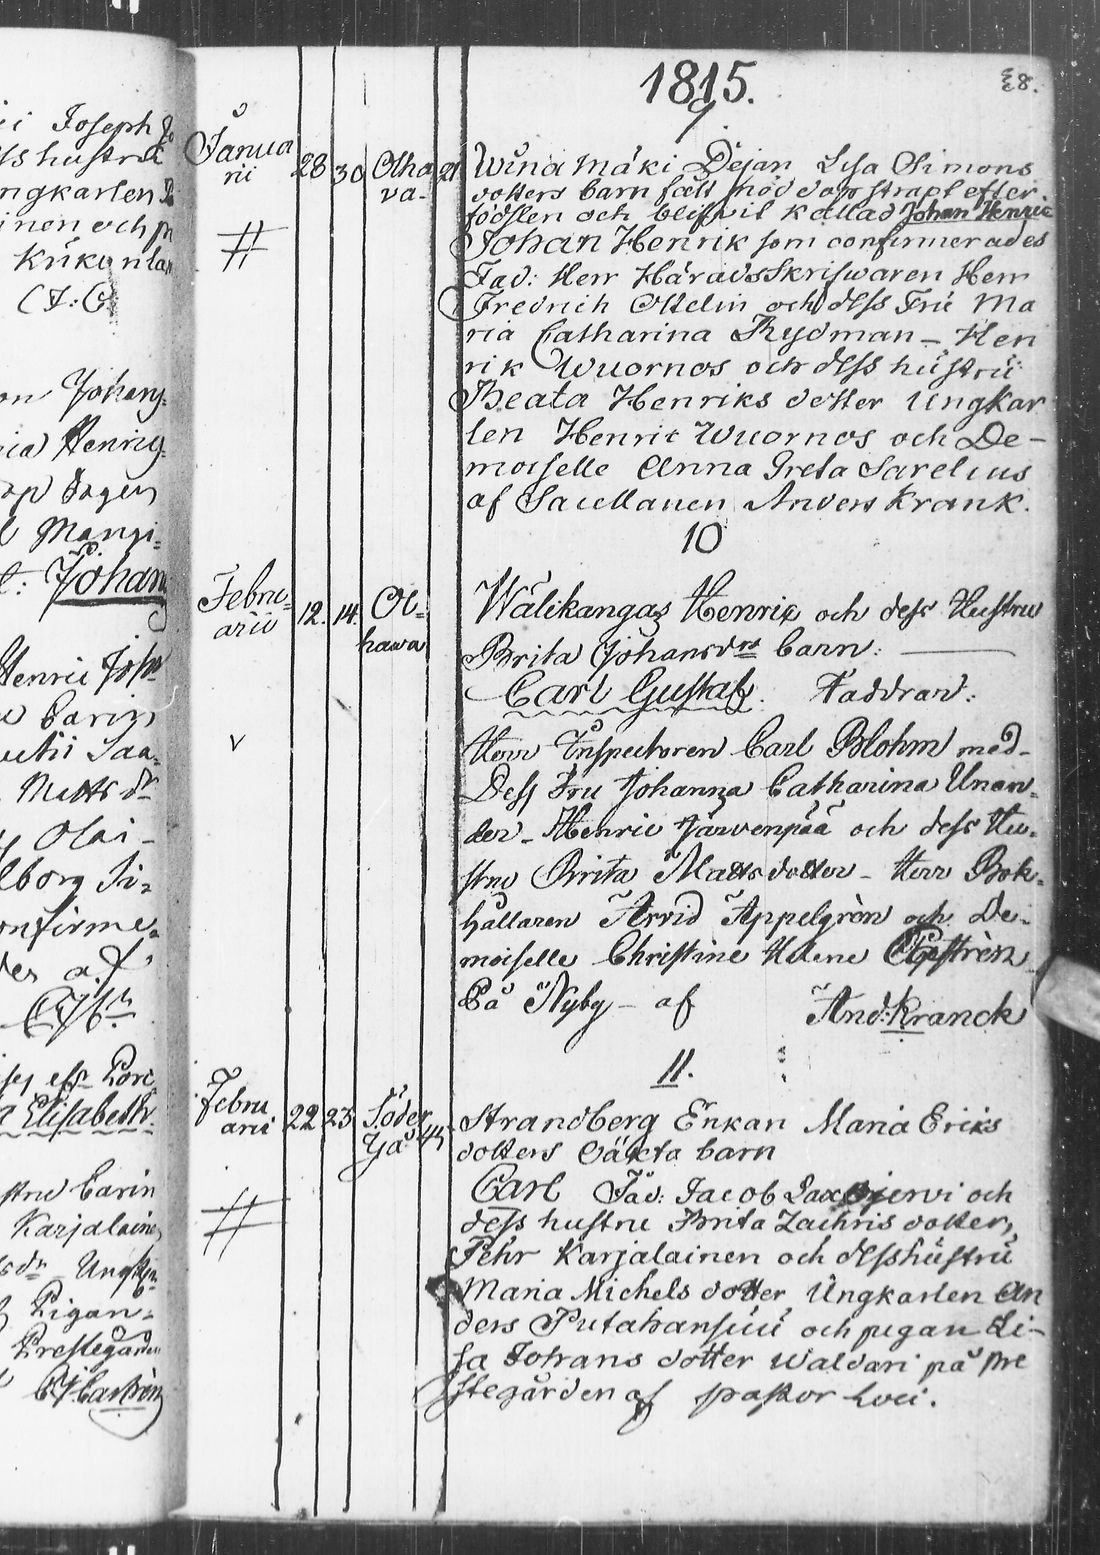 1815.
88.
9
Januarii 28 30 Olhava- 21
Wuinamäki Pejan Lisa Simons
dotters barn fått nöd dop strapt efter
födslen och blifvit kallad Johan Henric
Johan Henrik som confirmerades
Fad: Herr HäradsSkrifwaren Herr
Fredrich Ottelin och dess Fru Ma
ria Catharina Rydman - Hen
rik Wuornos och dess hustru
Beata Henriks dotter Ungkar
len Henric Wuornos och De-
moiselle Anna Greta Sarelius
af Sacellanen Anders Krank.
10
Februarii 12. 14. Olhawa
Wälikangas Henric och dess Hustru
Brita Johansdrs barn:
Carl Gustaf. Faddrar:
Herr Inspectoren Carl Blohm med-
Dess Fru Johanna Catharina Unan-
der- Henric Järvenpää och dess Hu-
stru Brita Mattsdotter - Herr Bok-
hållaren Arvid Appelgrèn och De-
moiselle Christine Helene
På Nyby - af And: Kranck
11.
Februarii 22 23 Söder Yå 45
Strandberg Enkan Maria Eriks
dotters Oäkta barn
Carl Fad: Jacob och
dess hustru Brita Zachris dotter,
Pehr Karjalainen och dess hustru
Maria Michels dotter Ungkarlen An
ders Putahansuu och pigan Li-
sa Johans dotter Waldari på Pre
stegården af pastor Loci.
Joseph
hustru
ngkarlen
inen och
on Johans-
Henric
Dagen
Johan
Henric
Carin
Matts dr
Olai-
onfirme-
des af
Elisabeth.
stru Carin
Karjalainen
Pigan-
Prestegården
Castrèn